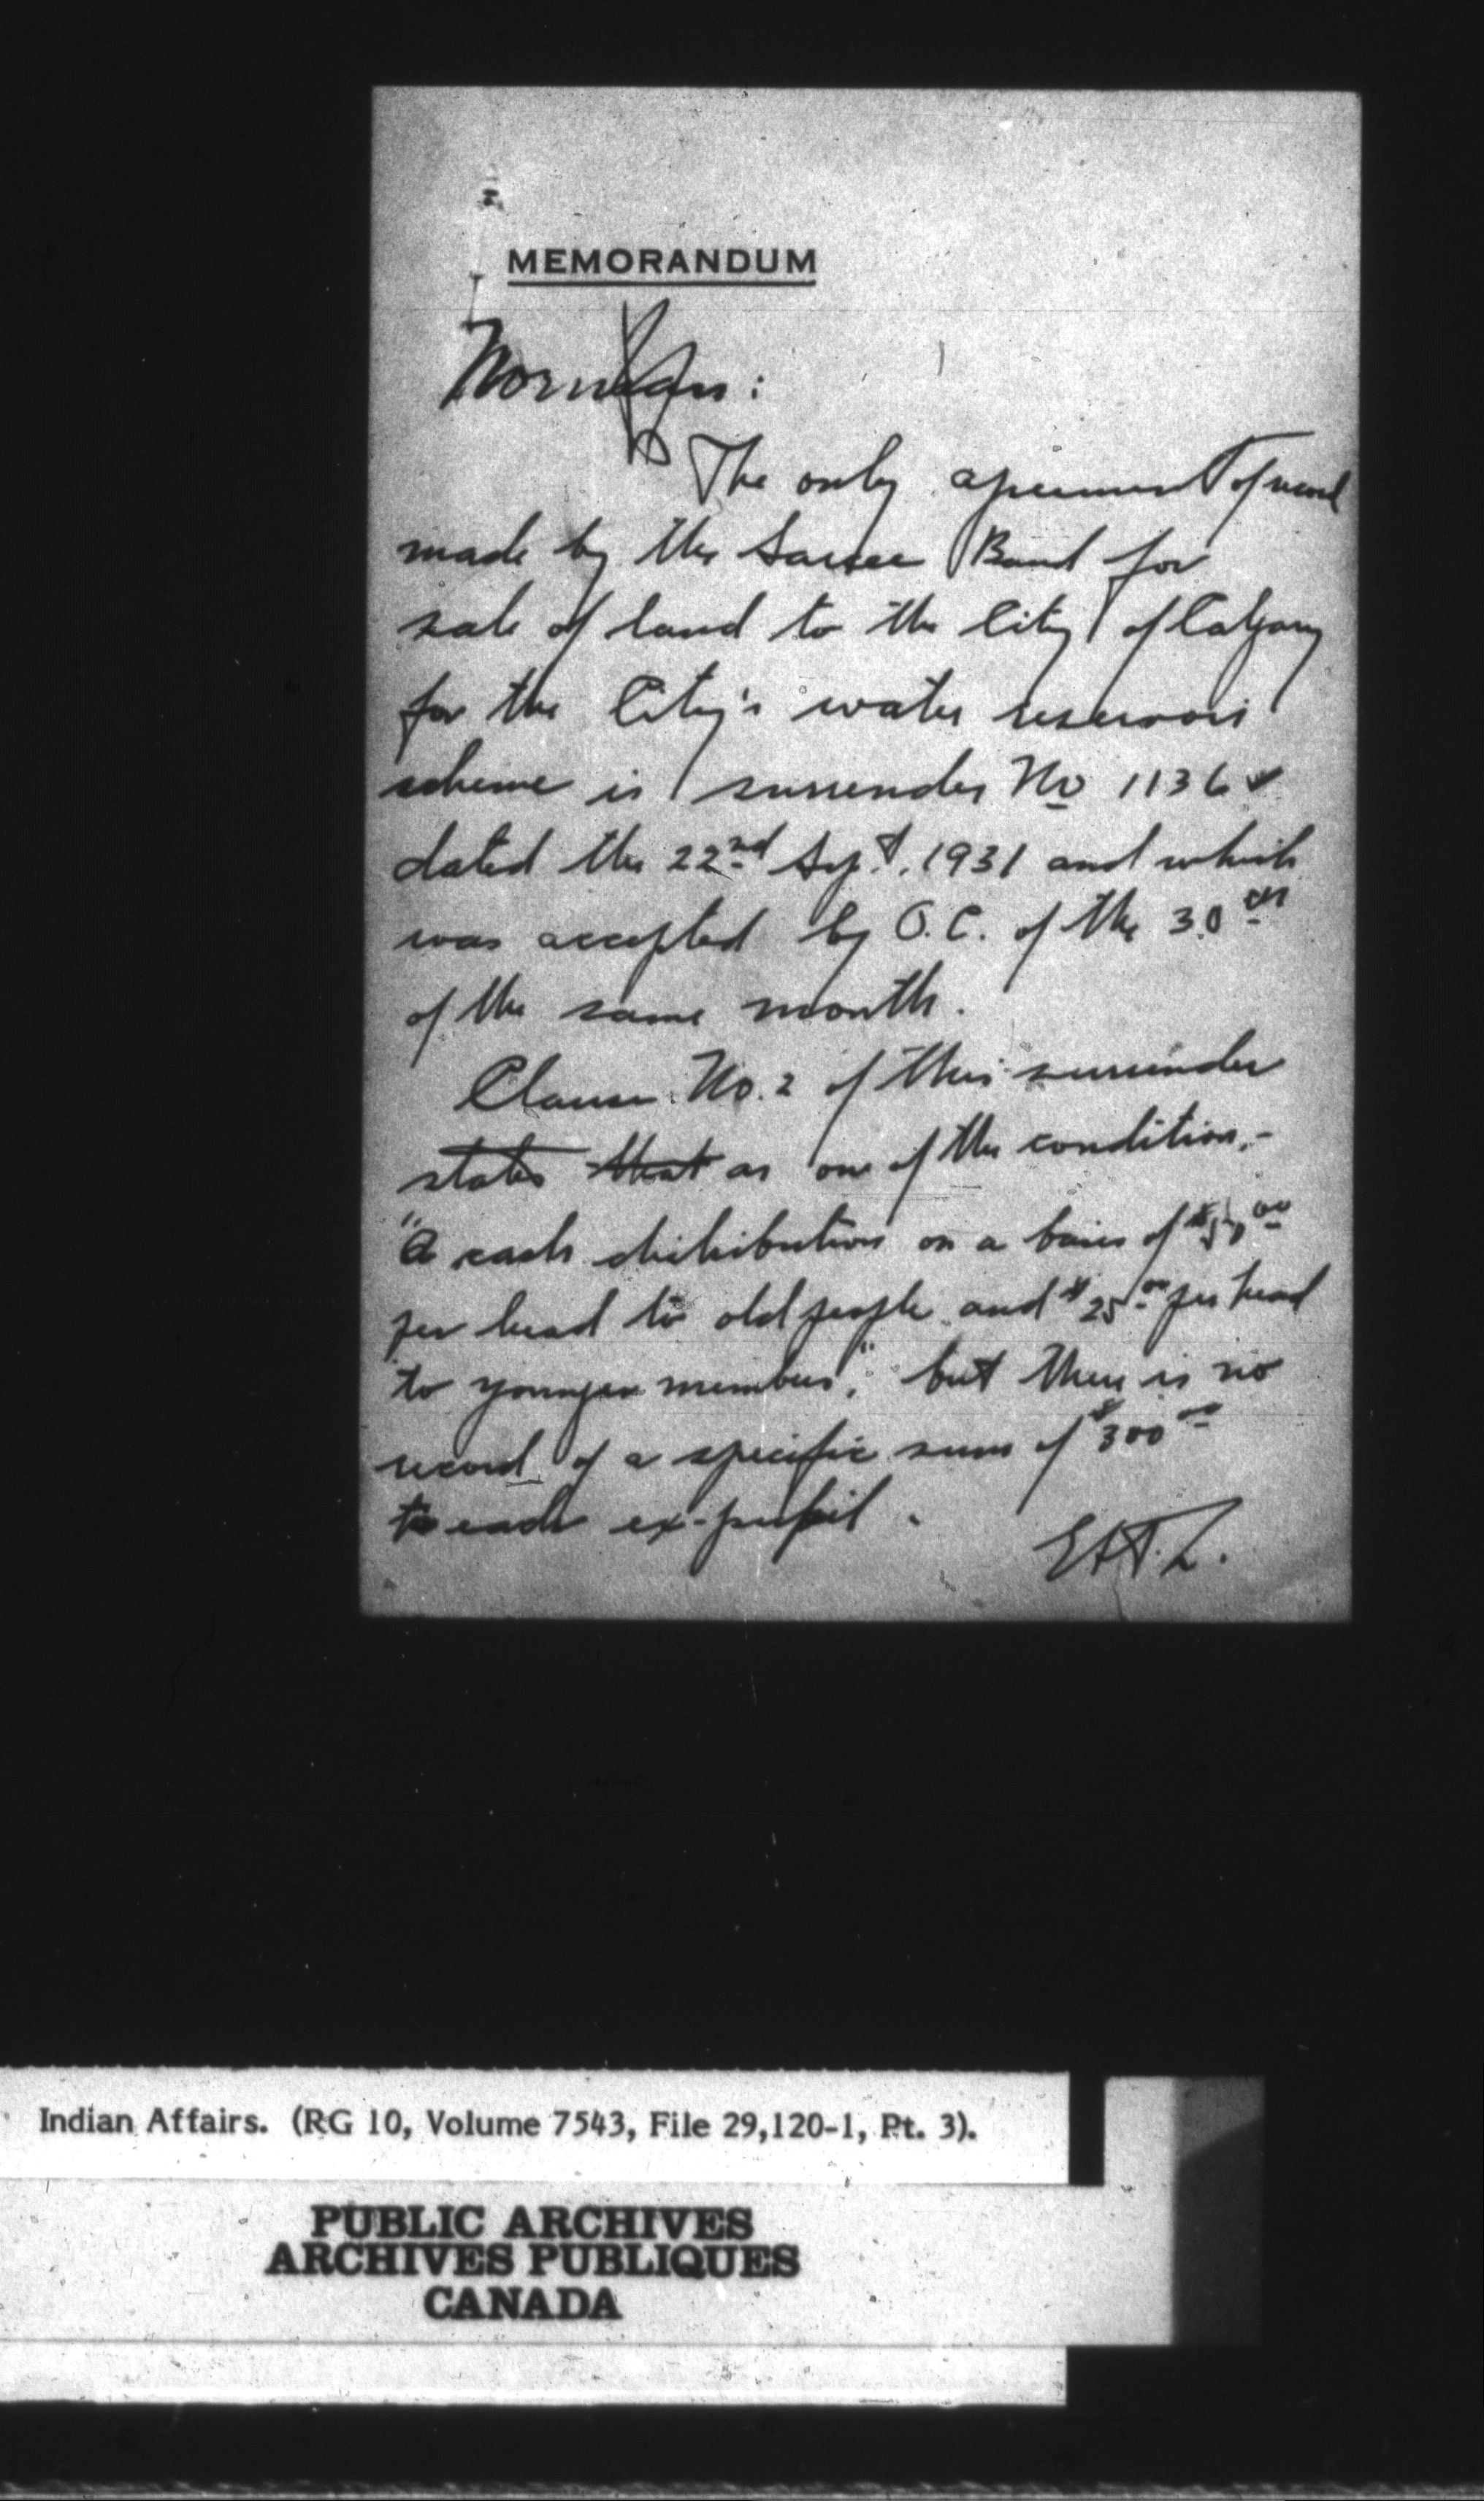 MEMORANDUM
Norman:
The only agreement of record
made by the Sarcee Band for
sale of land to the City of Calgary
for the City's water reservoir
scheme is surrender No 1136
dated the 22nd Sept. 1931 and which
was accepted by O.C. of the 30th
of the same month.
Clause No. 2 of this surrender
states that as one of the condition,-
"A cash distribution on a basis of $50 00
per head to old people and $25 00 per head
to younger members," but there is no
record of a specific sum of $300 00
to each ex-pupil.
Indian Affairs. (RG 10, Volume 7543, File 29,120-1, Pt. 3).
PUBLIC ARCHIVES
ARCHIVES PUBLIQUES
CANADA